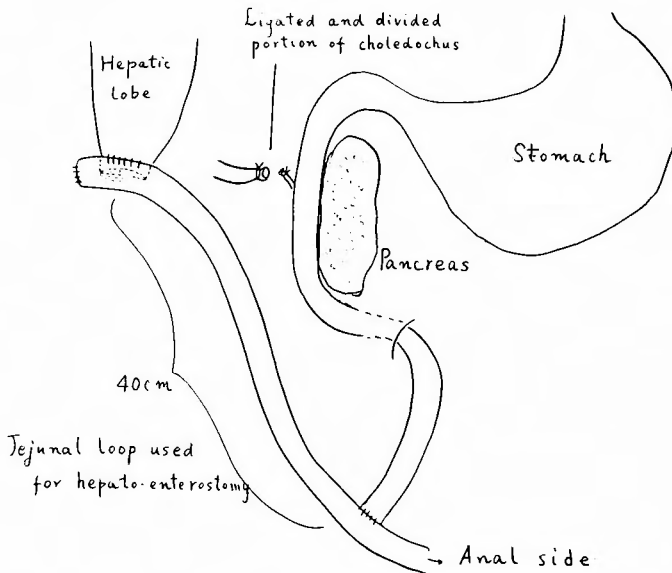 Ligated and divided
portion of choledochus
Hepatic
lobe
Stomach
Pancreas
40cm
Jejunal loop used
for hepato-enterostomy
→ Anal side